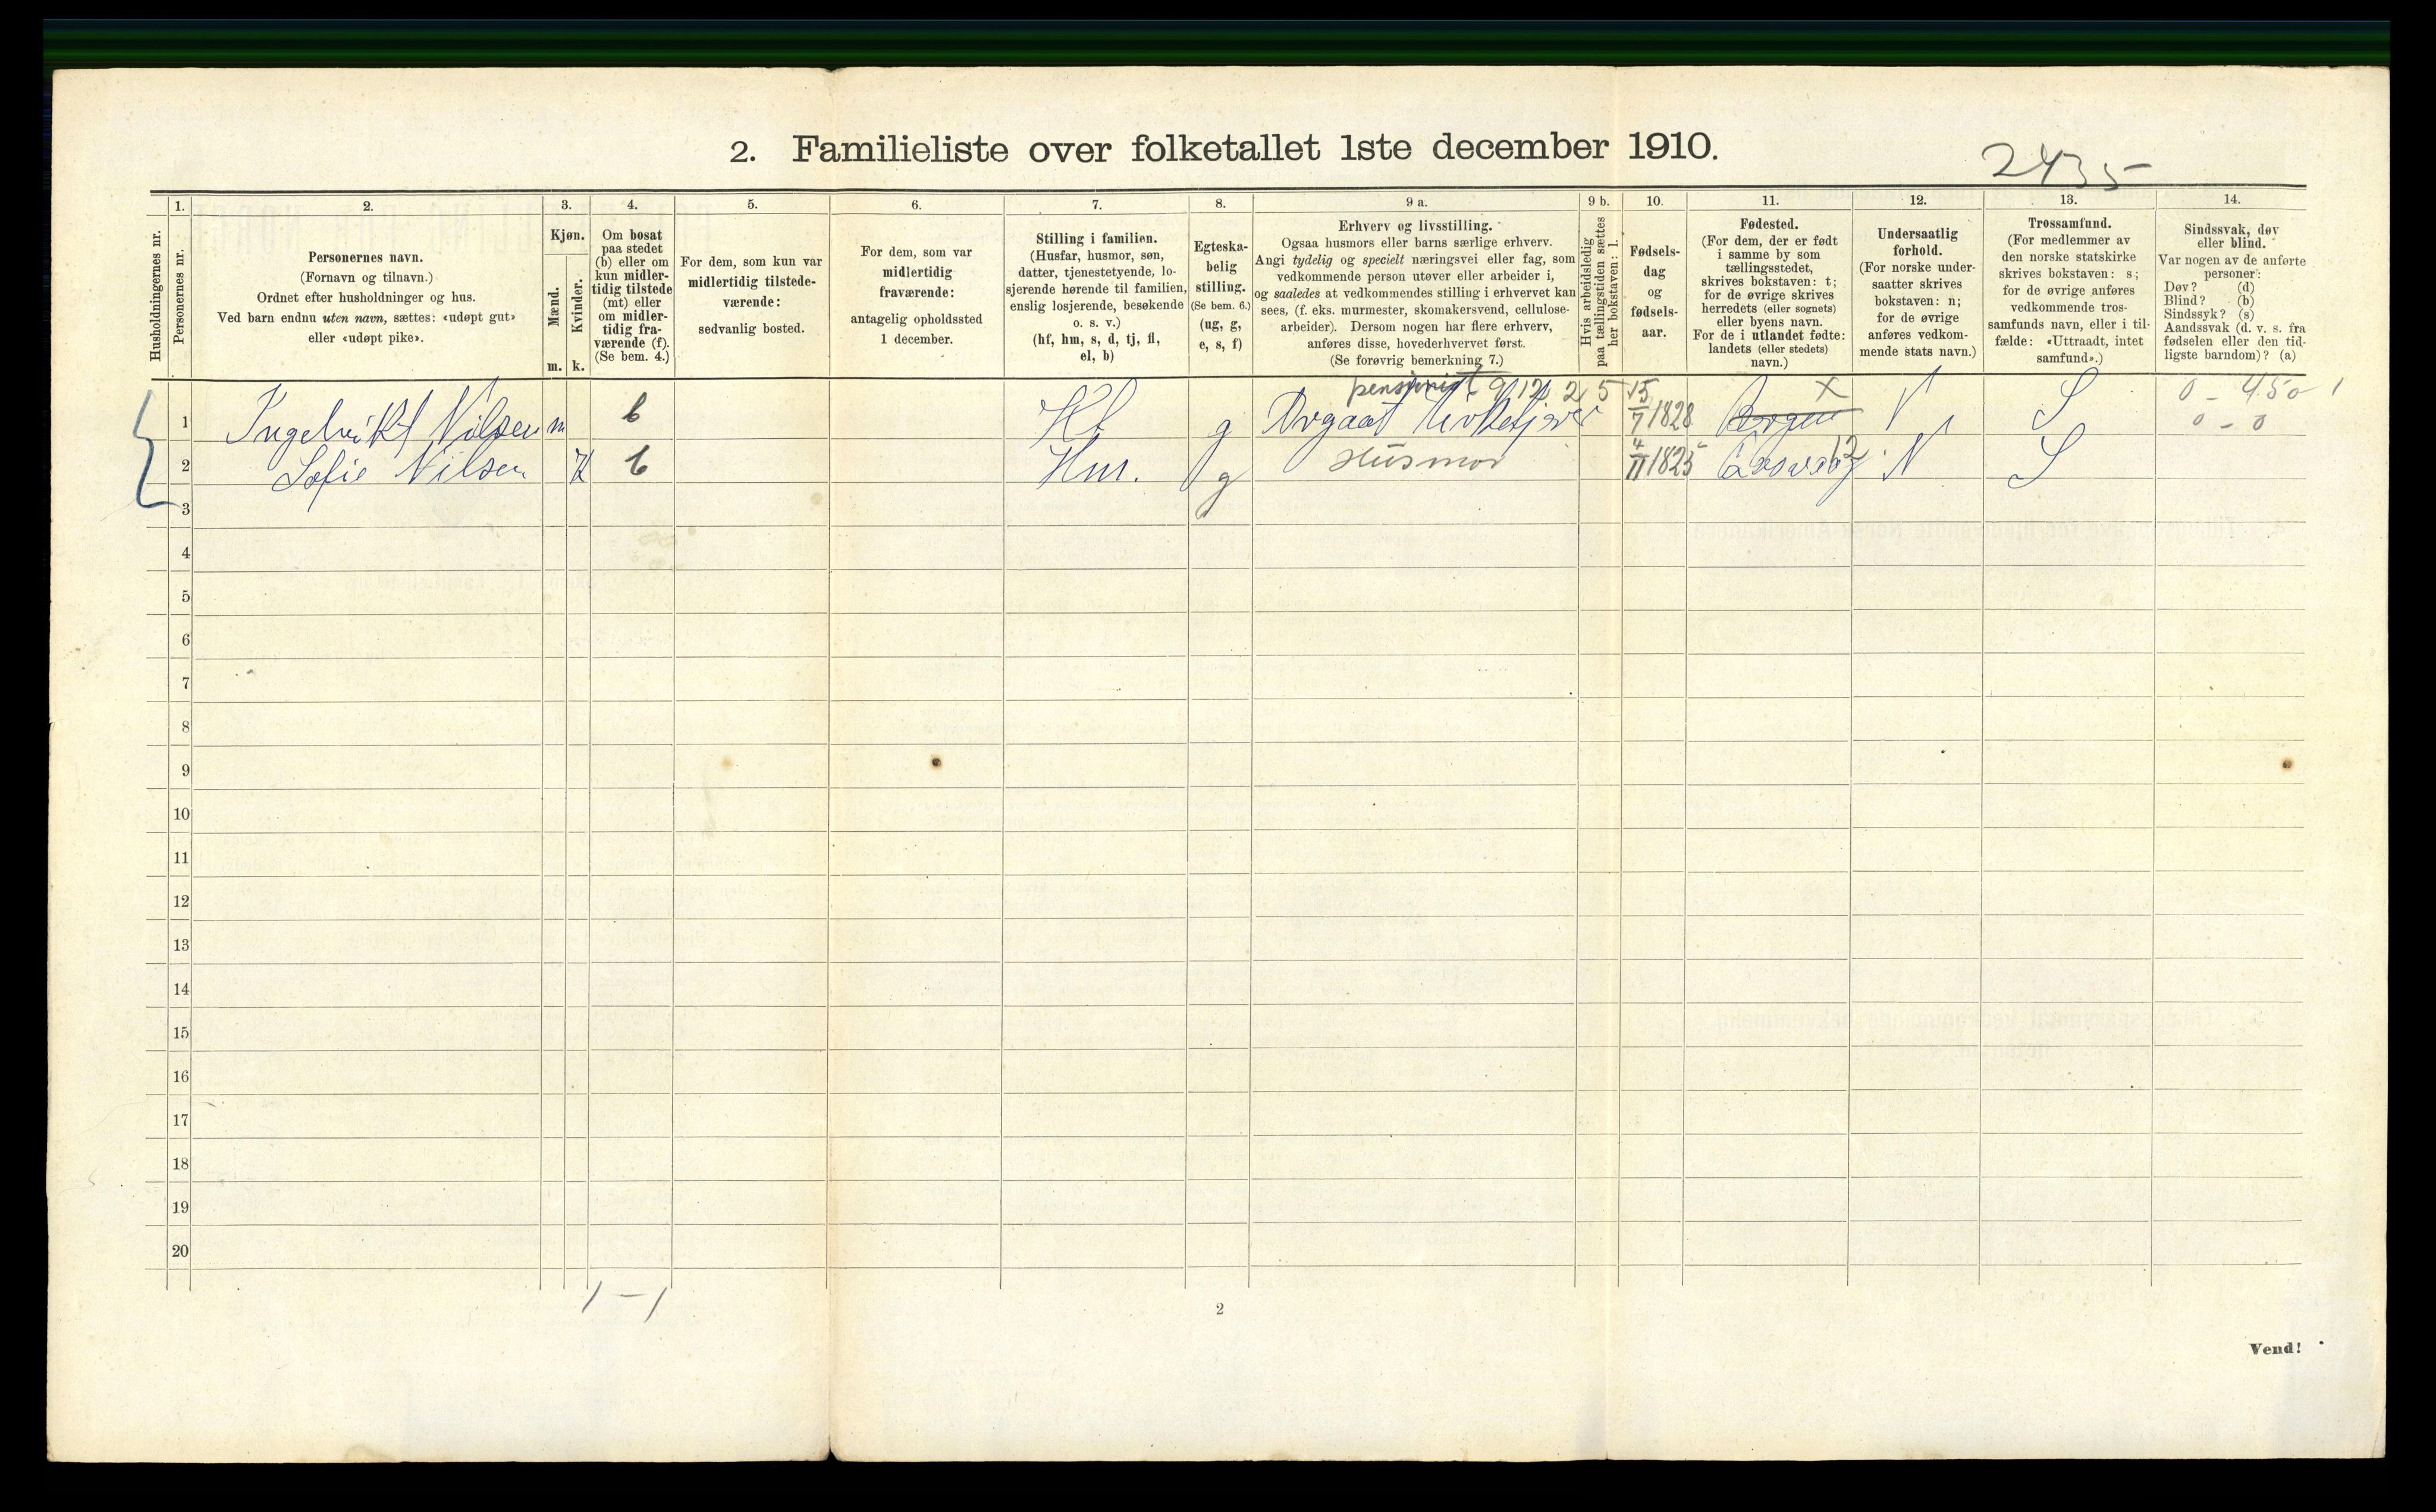 2. Familieliste over folketallet 1ste december 1910.
2435
1. 2. 3. 4. 5. 6. 7. 8. 9 a. 9 b. 10. 11. 12. 13. 14.
Husholdningernes nr.
Personernes nr.
Personernes navn.
(Fornavn og tilnavn.)
Ordnet efter husholdninger og hus.
Ved barn endnu uten navn, sættes: «udøpt gut»
eller «udøpt pike».
Kjøn.
Mænd.
Kvinder.
m. k.
Om bosat
paa stedet
(b) eller om
kun midler-
tidig tilstede
(mt) eller
om midler-
tidig fra-
værende (f).
(Se bem. 4.)
For dem, som kun var
midlertidig tilstede-
værende:
sedvanlig bosted.
For dem, som var
midlertidig
fraværende:
antagelig opholdssted
1 december.
Stilling i familien.
(Husfar, husmor, søn,
datter, tjenestetyende, lo-
sjerende hørende til familien,
enslig losjerende, besøkende
o. s. v.)
(hf, hm, s, d, tj, fl,
el, b)
Egteska-
belig
stilling.
(Se bem. 6.)
(ug, g,
e, s, f)
Erhverv og livsstilling.
Ogsaa husmors eller barns særlige erhverv.
Angi tydelig og specielt næringsvei eller fag, som
vedkommende person utøver eller arbeider i,
og saaledes at vedkommendes stilling i erhvervet kan
sees, (f. eks. murmester, skomakersvend, cellulose-
arbeider). Dersom nogen har flere erhverv,
anføres disse, hovederhvervet først.
(Se forøvrig bemerkning 7.)
Hvis arbeidsledig
paa tællingstiden sættes
her bokstaven: l.
Fødsels-
dag
og
fødsels-
aar.
Fødested.
(For dem, der er født
i samme by som
tællingsstedet,
skrives bokstaven: t;
for de øvrige skrives
herredets (eller sognets)
eller byens navn.
For de i utlandet fødte:
landets (eller stedets)
navn.)
Undersaatlig
forhold.
(For norske under-
saatter skrives
bokstaven: n;
for de øvrige
anføres vedkom-
mende stats navn.)
Trossamfund.
(For medlemmer av
den norske statskirke
skrives bokstaven: s;
for de øvrige anføres
vedkommende tros-
samfunds navn, eller i til-
fælde: «Uttraadt, intet
samfund».)
Sindssvak, døv
eller blind.
Var nogen av de anførte
personer:
Døv? (d)
Blind? (b)
Sindssyk? (s)
Aandssvak (d. v. s. fra
fødselen eller den tid-
ligste barndom)? (a)
pensionist 9 12 2 5 x 0 - 450 1
1 Nilsen m b Hf g 15/7 1828 Bergen N S 0 - 0
2 Sofie Nilsen K b Hm. g Husmor 4/11 1825 12 N S
3
4
5
6
7
8
9
10
11
12
13
14
15
16
17
18
19
20
1 - 1
2
Vend!